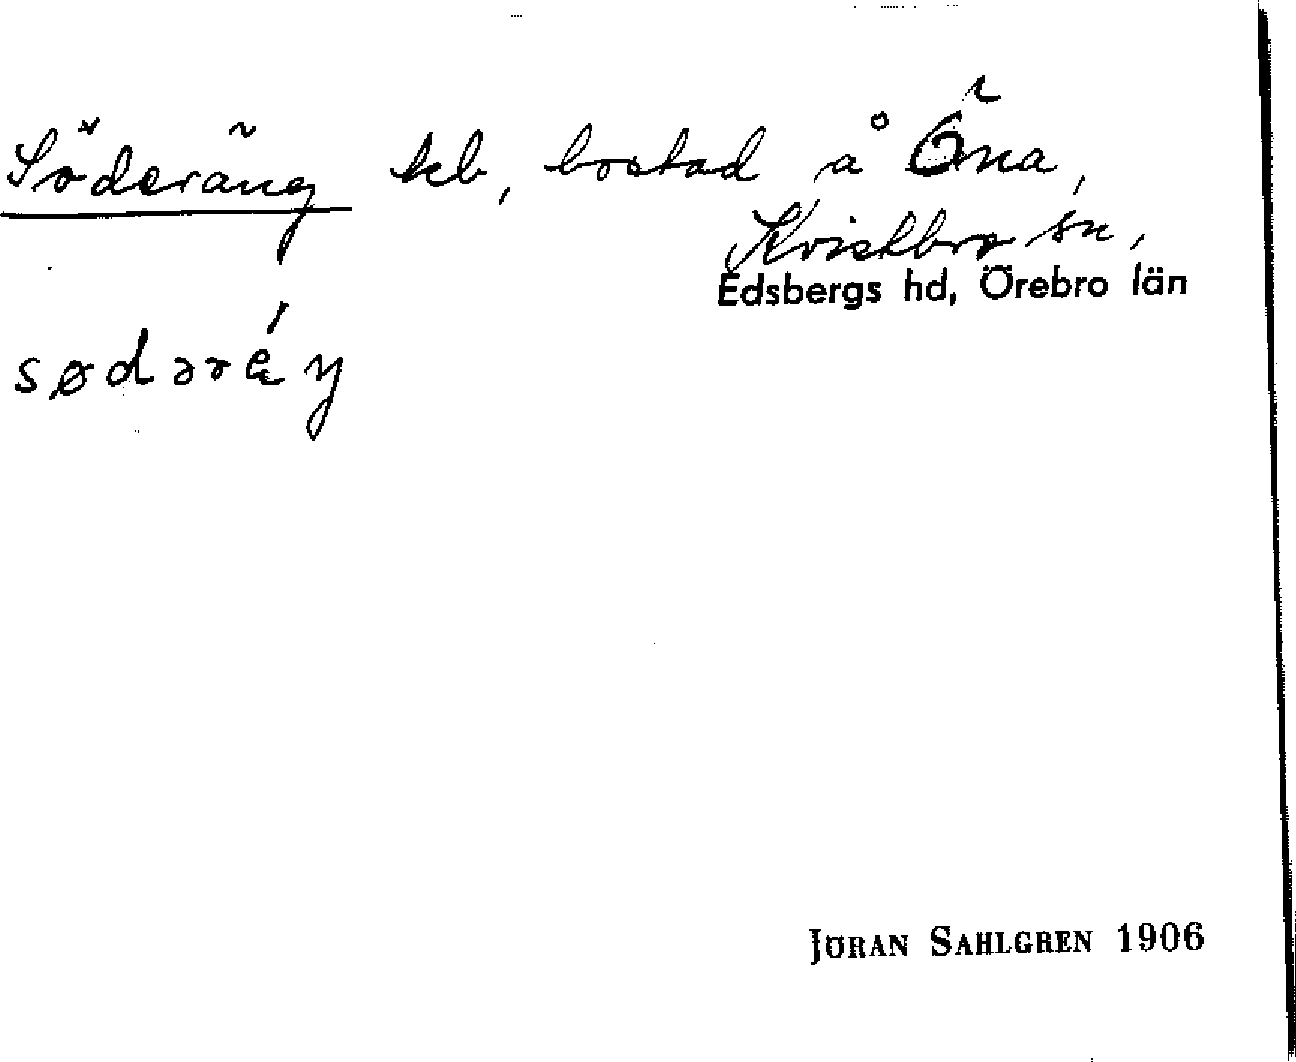 Söderäng tcb, bostad å Öna,
Kvistbro sn,
Edsbergs hd, Örebro län
sødərǽŋ
JÖRAN SAHLGREN 1906